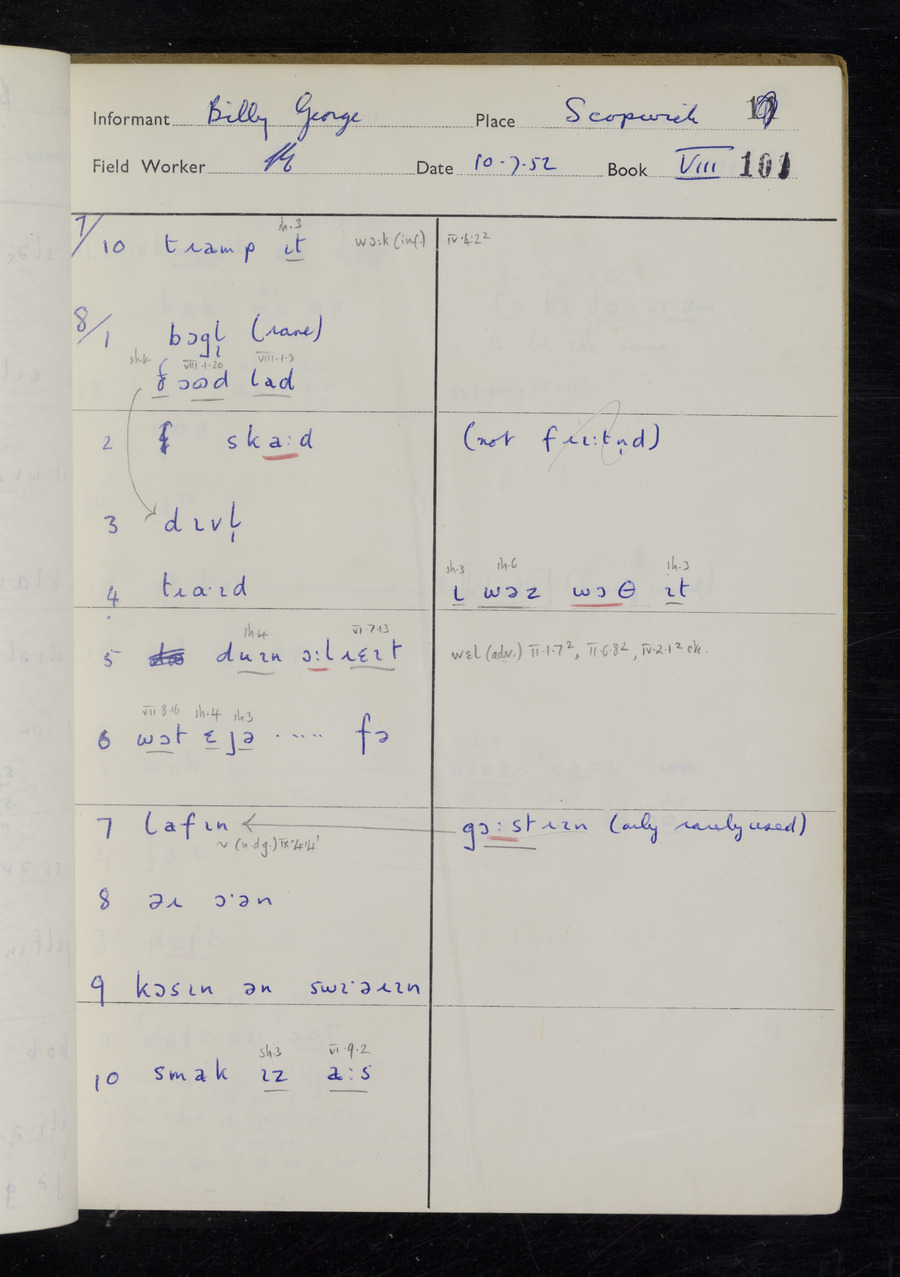 Informant Billy George Place Scopwick
Field Worker Date 10.7.52 Book VIII 101
sh.3
7/10 tɹamp ɪt wɔ:k (inf.) IV.4.2²
8/1 bɔgl̩ (rare)
VIII.1.20 VIII.1.3
ɔʊd lad
2 ska:d (not fɹɪ:tn̩d)
3 dɪvl̩
sh.3 sh.6 sh.3
4 tɹa·ɪd ɪ wəz wɔθ ɪt
sh.4 VI.7.13
5 duɪn ɔ:lɹɛɪt wɛl (adv.) II.1.7², II.6.8², IV.2.1² etc.
VII.8.16 sh.4 sh.3
6 wɔt ɛ jə ..... fə
7 lafɪn ← gɔ:stɹɪn (only rarely used)
~ (n.dg.) IX.4.14¹
8 əɪ ɔ·ən
9 kɔsɪn ən swɪ·əɹɪn
sh.3 VI.9.2
10 smak ɪz a:s